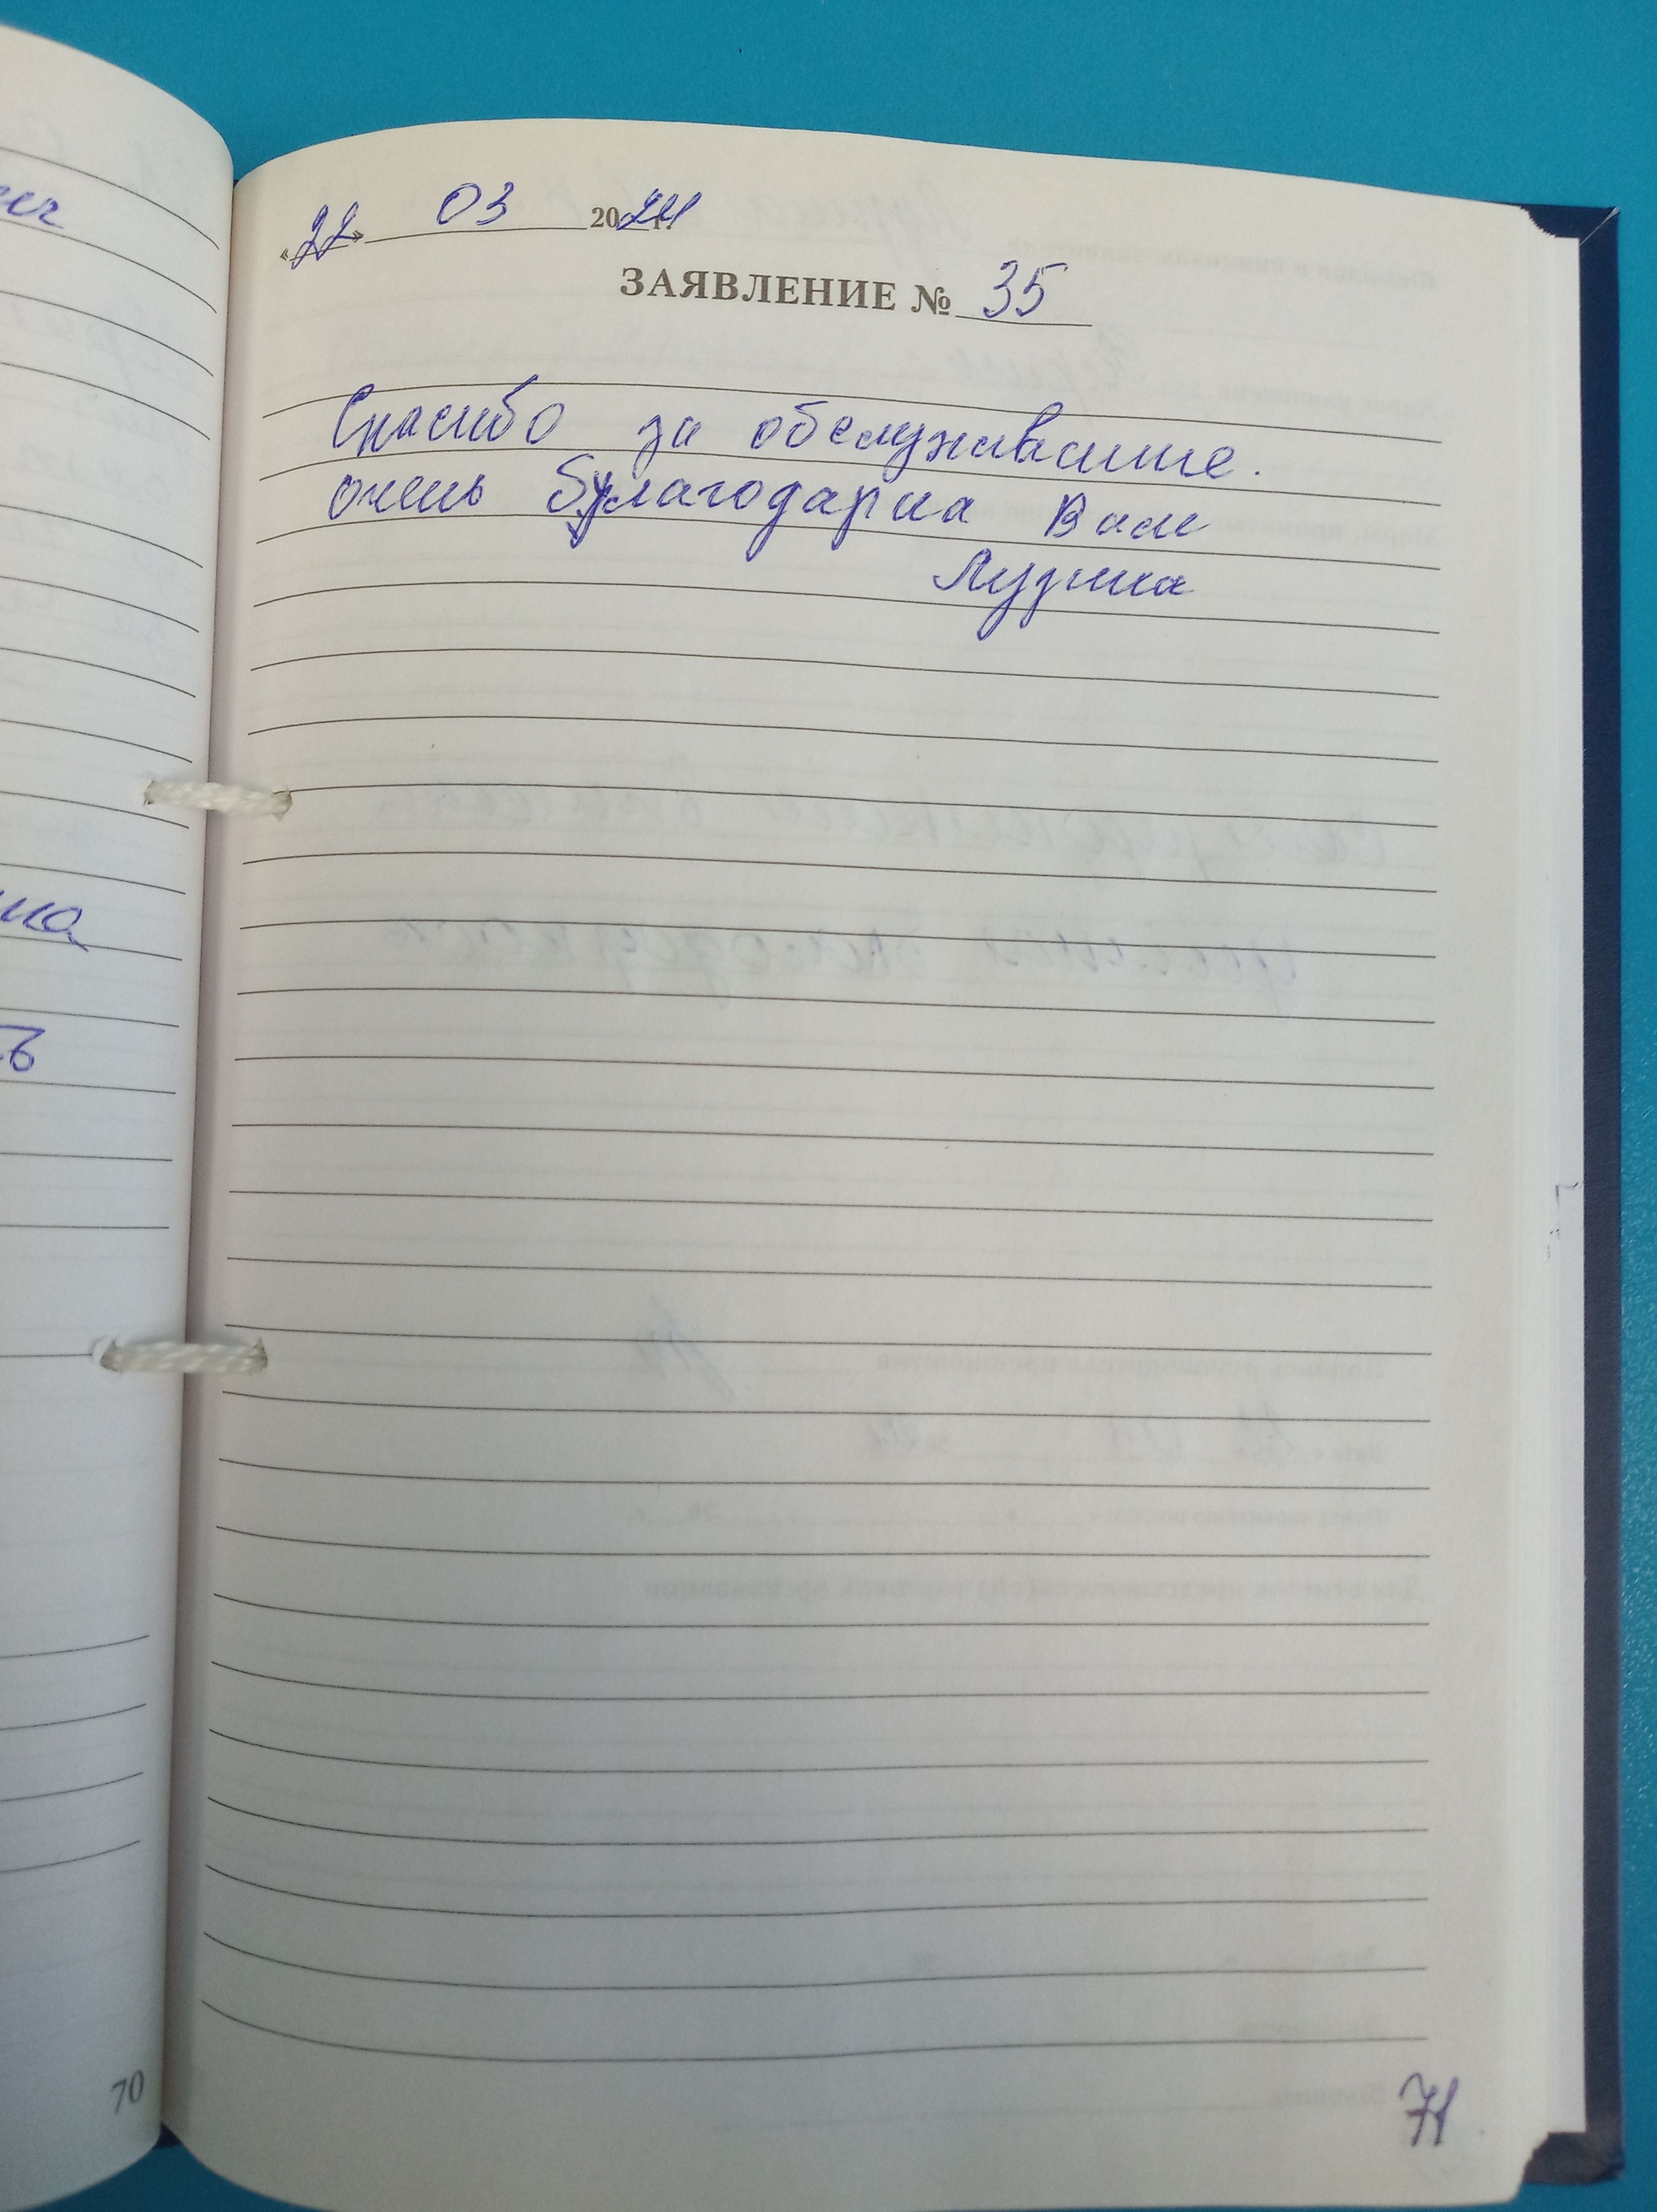 «22» 03 2024 г.
ЗАЯВЛЕНИЕ № 35
Спасибо за обслуживание.
очень благодарна Вам
Лузина
70
71